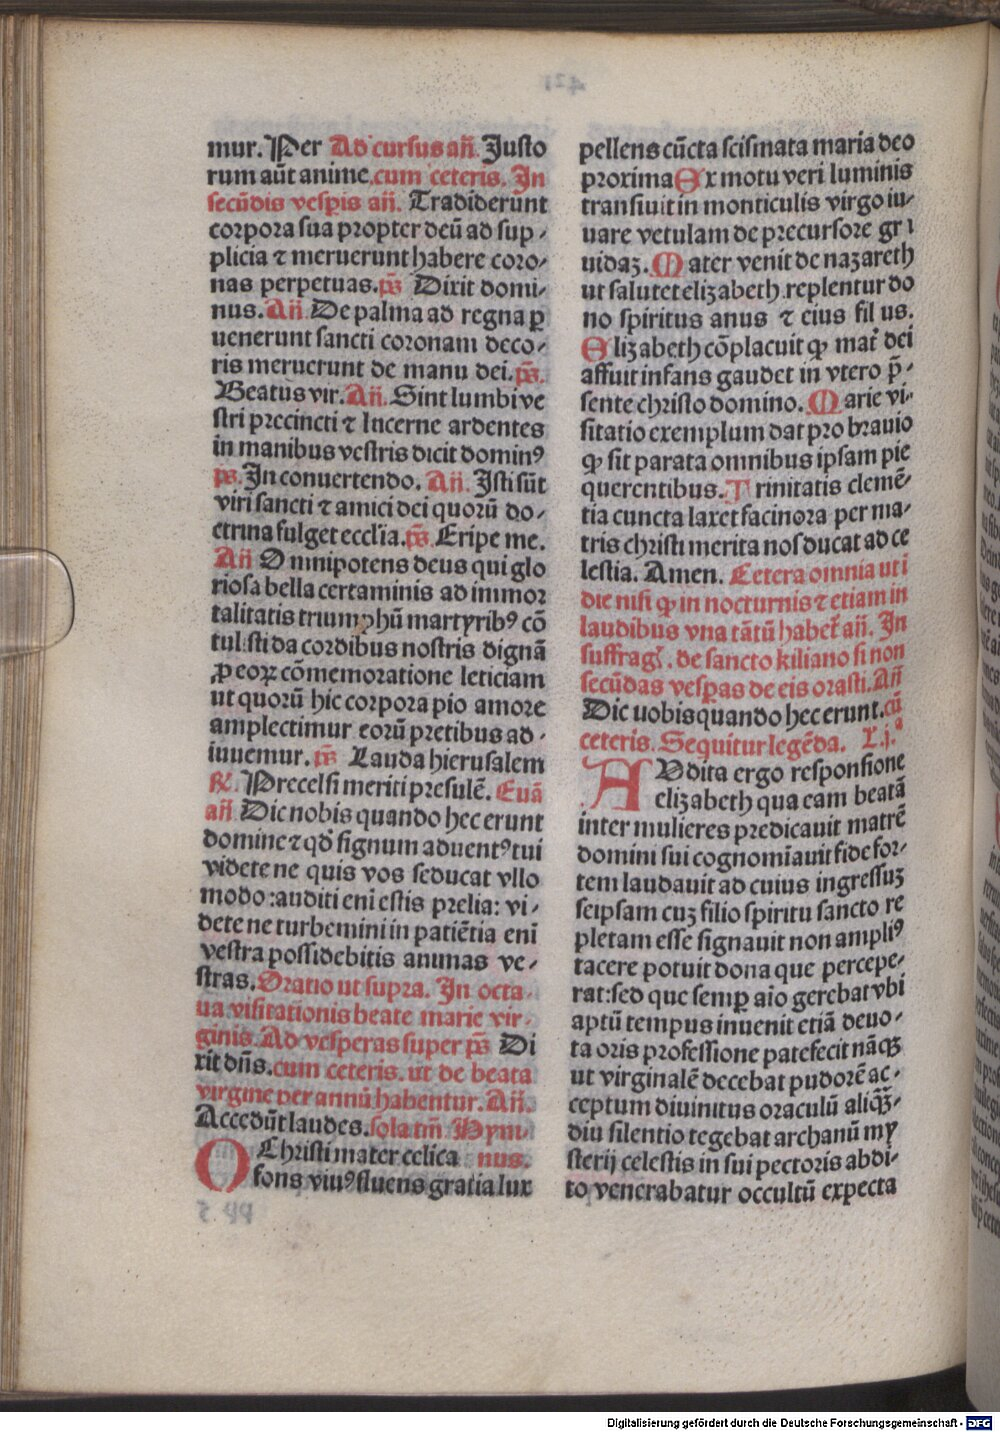 mur. Per Ad cursus añ. Justo
rum aũt anime.cum ceteris. In
secũdis vespis añ. Tradiderunt
corpora sua propter deũ ad sup-
plicia ⁊ meruerunt habere coro-
nas perpetuas.p̃s Dixit domi-
nus. Añ. De palma ad regna ꝑ
uenerunt sancti coronam deco-
ris meruerunt de manu dei. p̃s.
Beatus vir. Añ. Sint lumbi ve
stri precincti ⁊ lucerne ardentes
in manibus vestris dicit dominꝰ
ps. In conuertendo. Añ. Isti sũt
viri sancti ⁊ amici dei quorũ do-
ctrina fulget ecclia. p̃s. Eripe me.
Añ Omnipotens deus qui glo
riosa bella certaminis ad immor
talitatis triumphũ martyribꝰ cõ
tulisti da cordibus nostris dignã
ꝓ eoꝝ cõmemoratione leticiam
ut quorũ hic corpora pio amore
amplectimur eorũ precibus ad-
iuuemur. p̃s Lauda hierusalem
℟. Precelsi meriti presulẽ. Euã
añ Dic nobis quando hec erunt
domine ⁊ qd̓ signum aduentꝰ tui
videte ne quis vos seducat vllo
modo: auditi eni estis prelia: vi-
dete ne turbemini in patiẽtia eni
vestra possidebitis animas ve-
stras. Oratio ut supra. In octa-
ua visitationis beate marie vir-
ginis. Ad vesperas super p̃s Di
xit dñs. cum ceteris. ut de beata
virgine per annũ habentur. Añ.
Accedũt laudes. sola tm̃. Hym-
O Christi mater celica nus.
fons viuꝰ fluens gratia lux
pellens cũcta scismata maria deo
proxima Ex motu veri luminis
transiuit in monticulis virgo iu-
uare vetulam de precursore gra
uidaꝫ. Mater venit de nazareth
ut salutet elizabeth replentur do
no spiritus anus ⁊ eius filius.
Elizabeth cõplacuit ꝙ mat̃ dei
affuit infans gaudet in vtero p̃-
sente christo domino. Marie vi-
sitatio exemplum dat pro brauio
ꝙ sit parata omnibus ipsam pie
querentibus. Trinitatis clemẽ-
tia cuncta laxet facinora per ma-
tris christi merita nos ducat ad ce
lestia. Amen. Cetera omnia uti
die nisi ꝙ in nocturnis ⁊ etiam in
laudibus vna tãtũ habet̃ añ. In
suffrag̃. de sancto kiliano si non
secũdas vespas de eis orasti. Añ
Dic uobis quando hec erunt. cũ
ceteris. Sequitur legẽda. L.j.ª
AVdita ergo responsione
elizabeth qua eam beatã
inter mulieres predicauit matrẽ
domini sui cognomiauit fide for-
tem laudauit ad cuius ingressuꝫ
seipsam cuꝫ filio spiritu sancto re
pletam esse signauit non ampliꝰ
tacere potuit dona que percepe-
rat: sed que semꝑ aio gerebat vbi
aptũ tempus inuenit etiã deuo-
ta oris professione patefecit nãqꝫ
ut virginalẽ decebat pudorẽ ac-
ceptum diuinitus oraculũ aliqꝫ-
diu silentio tegebat archanũ my
sterij celestis in sui pectoris abdi-
to venerabatur occultũ expecta
Digitalisierung gefördert durch die Deutsche Forschungsgemeinschaft - DFG